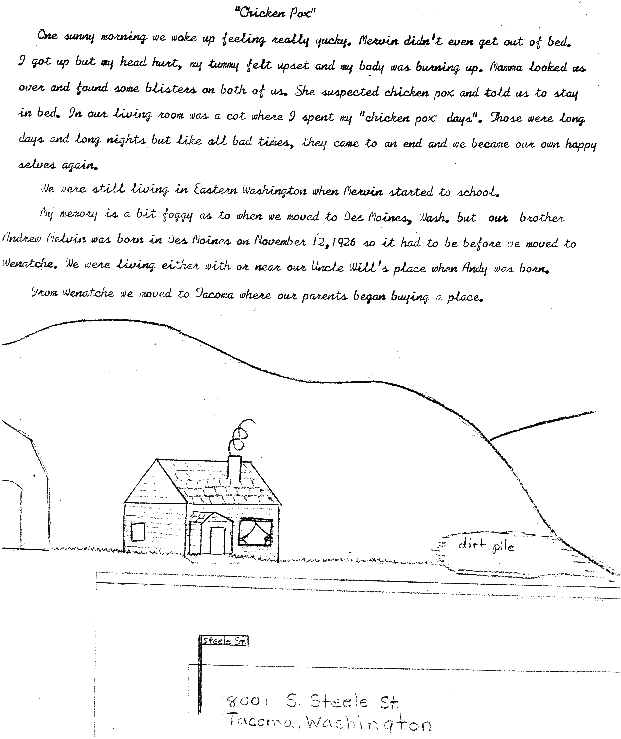 "Chicken Pox"
One sunny morning we woke up feeling really yucky. Mervin didn't even get out of bed.
I got up but my head hurt, my tummy felt upset and my body was burning up. Mamma looked us
over and found some blisters on both of us. She suspected chicken pox and told us to stay
in bed. In our living room was a cot where I spent my "chicken pox days". Those were long
days and long nights but like all bad times, they came to an end and we became our own happy
selves again.
We were still living in Eastern Washington when Mervin started to school.
My memory is a bit foggy as to when we moved to Des Moines, Wash. but our brother
Andrew Melvin was born in Des Moines on November 12, 1926 so it had to be before we moved to
Wenatche. We were living either with or near our Uncle Will's place when Andy was born.
From Wenatche we moved to Tacoma where our parents began buying a place.
dirt pile
Steele St.
8001 S. Steele St.
Tacoma, Washington